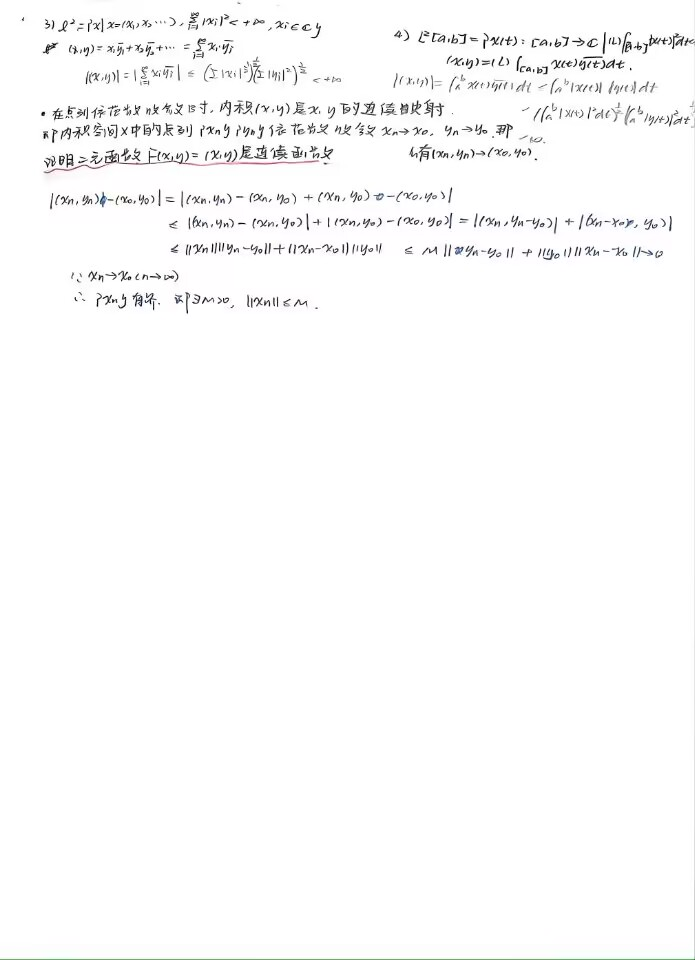 3) l² = {x | x=(x₁, x₂ ⋯), ∑_{i=1}^{∞} |xᵢ|² < +∞, xᵢ∈ℂ}
(x,y) = x₁ȳ₁ + x₂ȳ₂ + ⋯ = ∑_{i=1}^{∞} xᵢȳᵢ
|(x,y)| = |∑_{i=1}^{∞} xᵢȳᵢ| ≤ (∑|xᵢ|²)^{1/2} (∑|yᵢ|²)^{1/2} < +∞
4) L²[a,b] = {x(t): [a,b]→ℂ | (L)∫_{[a,b]} |x(t)|² dt<
(x,y) = (L) ∫_{[a,b]} x(t) \overline{y(t)} dt.
|(x,y)| = ∫_a^b x(t) \overline{y(t)} dt ≤ ∫_a^b |x(t)| |y(t)| dt
≤ (∫_a^b |x(t)|² dt)^{1/2} (∫_a^b |y(t)|² dt)^{1/2}
<∞.
• 在点列依范数收敛意义下, 内积(x,y)是x,y的连续映射.
即内积空间X中的点列{xₙ}{yₙ}依范数收敛 xₙ→x₀, yₙ→y₀. 那
么有(xₙ,yₙ)→(x₀,y₀).
证明二元函数F(x,y)=(x,y)是连续函数
|(xₙ,yₙ)-(x₀,y₀)| = |(xₙ,yₙ) - (xₙ,y₀) + (xₙ,y₀) - (x₀,y₀)|
≤ |(xₙ,yₙ) - (xₙ,y₀)| + |(xₙ,y₀) - (x₀,y₀)| = |(xₙ,yₙ-y₀)| + |(xₙ-x₀, y₀)|
≤ ||xₙ|| ||yₙ-y₀|| + ||xₙ-x₀|| ||y₀|| ≤ M ||yₙ-y₀|| + ||y₀|| ||xₙ-x₀|| →0
∵ xₙ→x₀ (n→∞)
∴ {xₙ}有界. 即∃M>0, ||xₙ|| ≤ M.